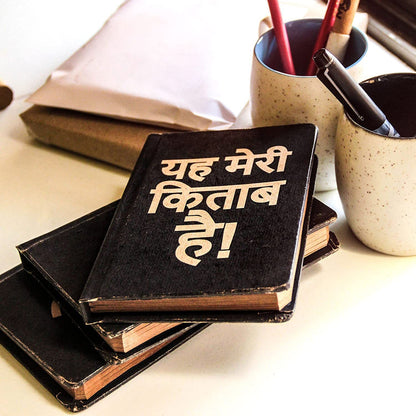 यह मेरी
किताब
है!